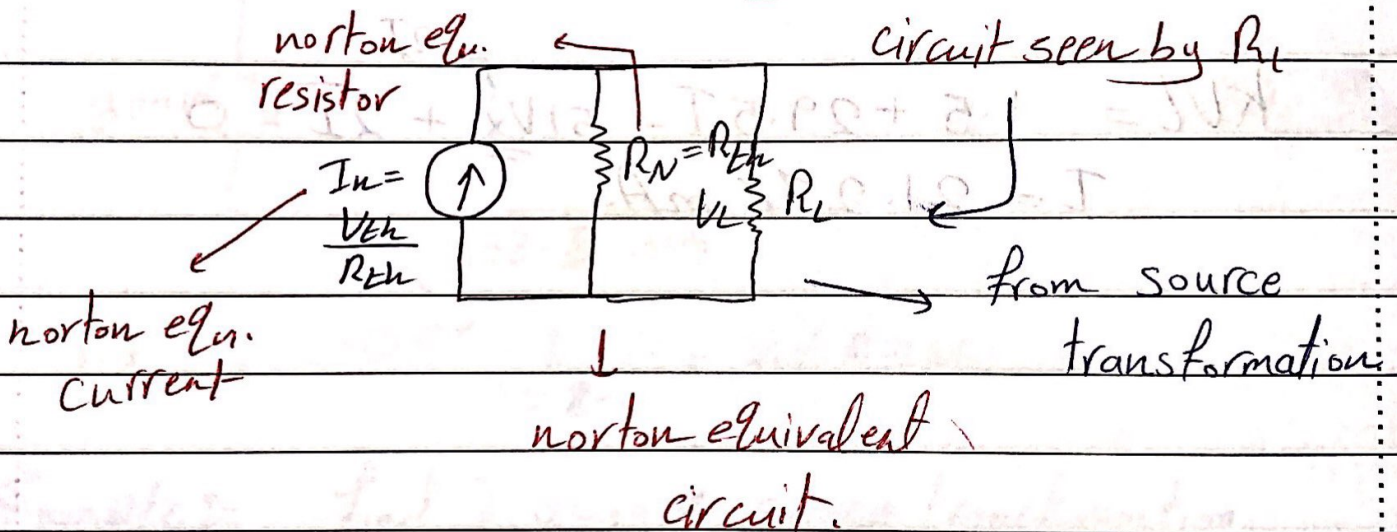 norton equ.
resistor
circuit seen by RL
RN = Rth
In =
Vth
Rth
VL
RL
from source
transformation.
norton equ.
current
norton equivalent
circuit.